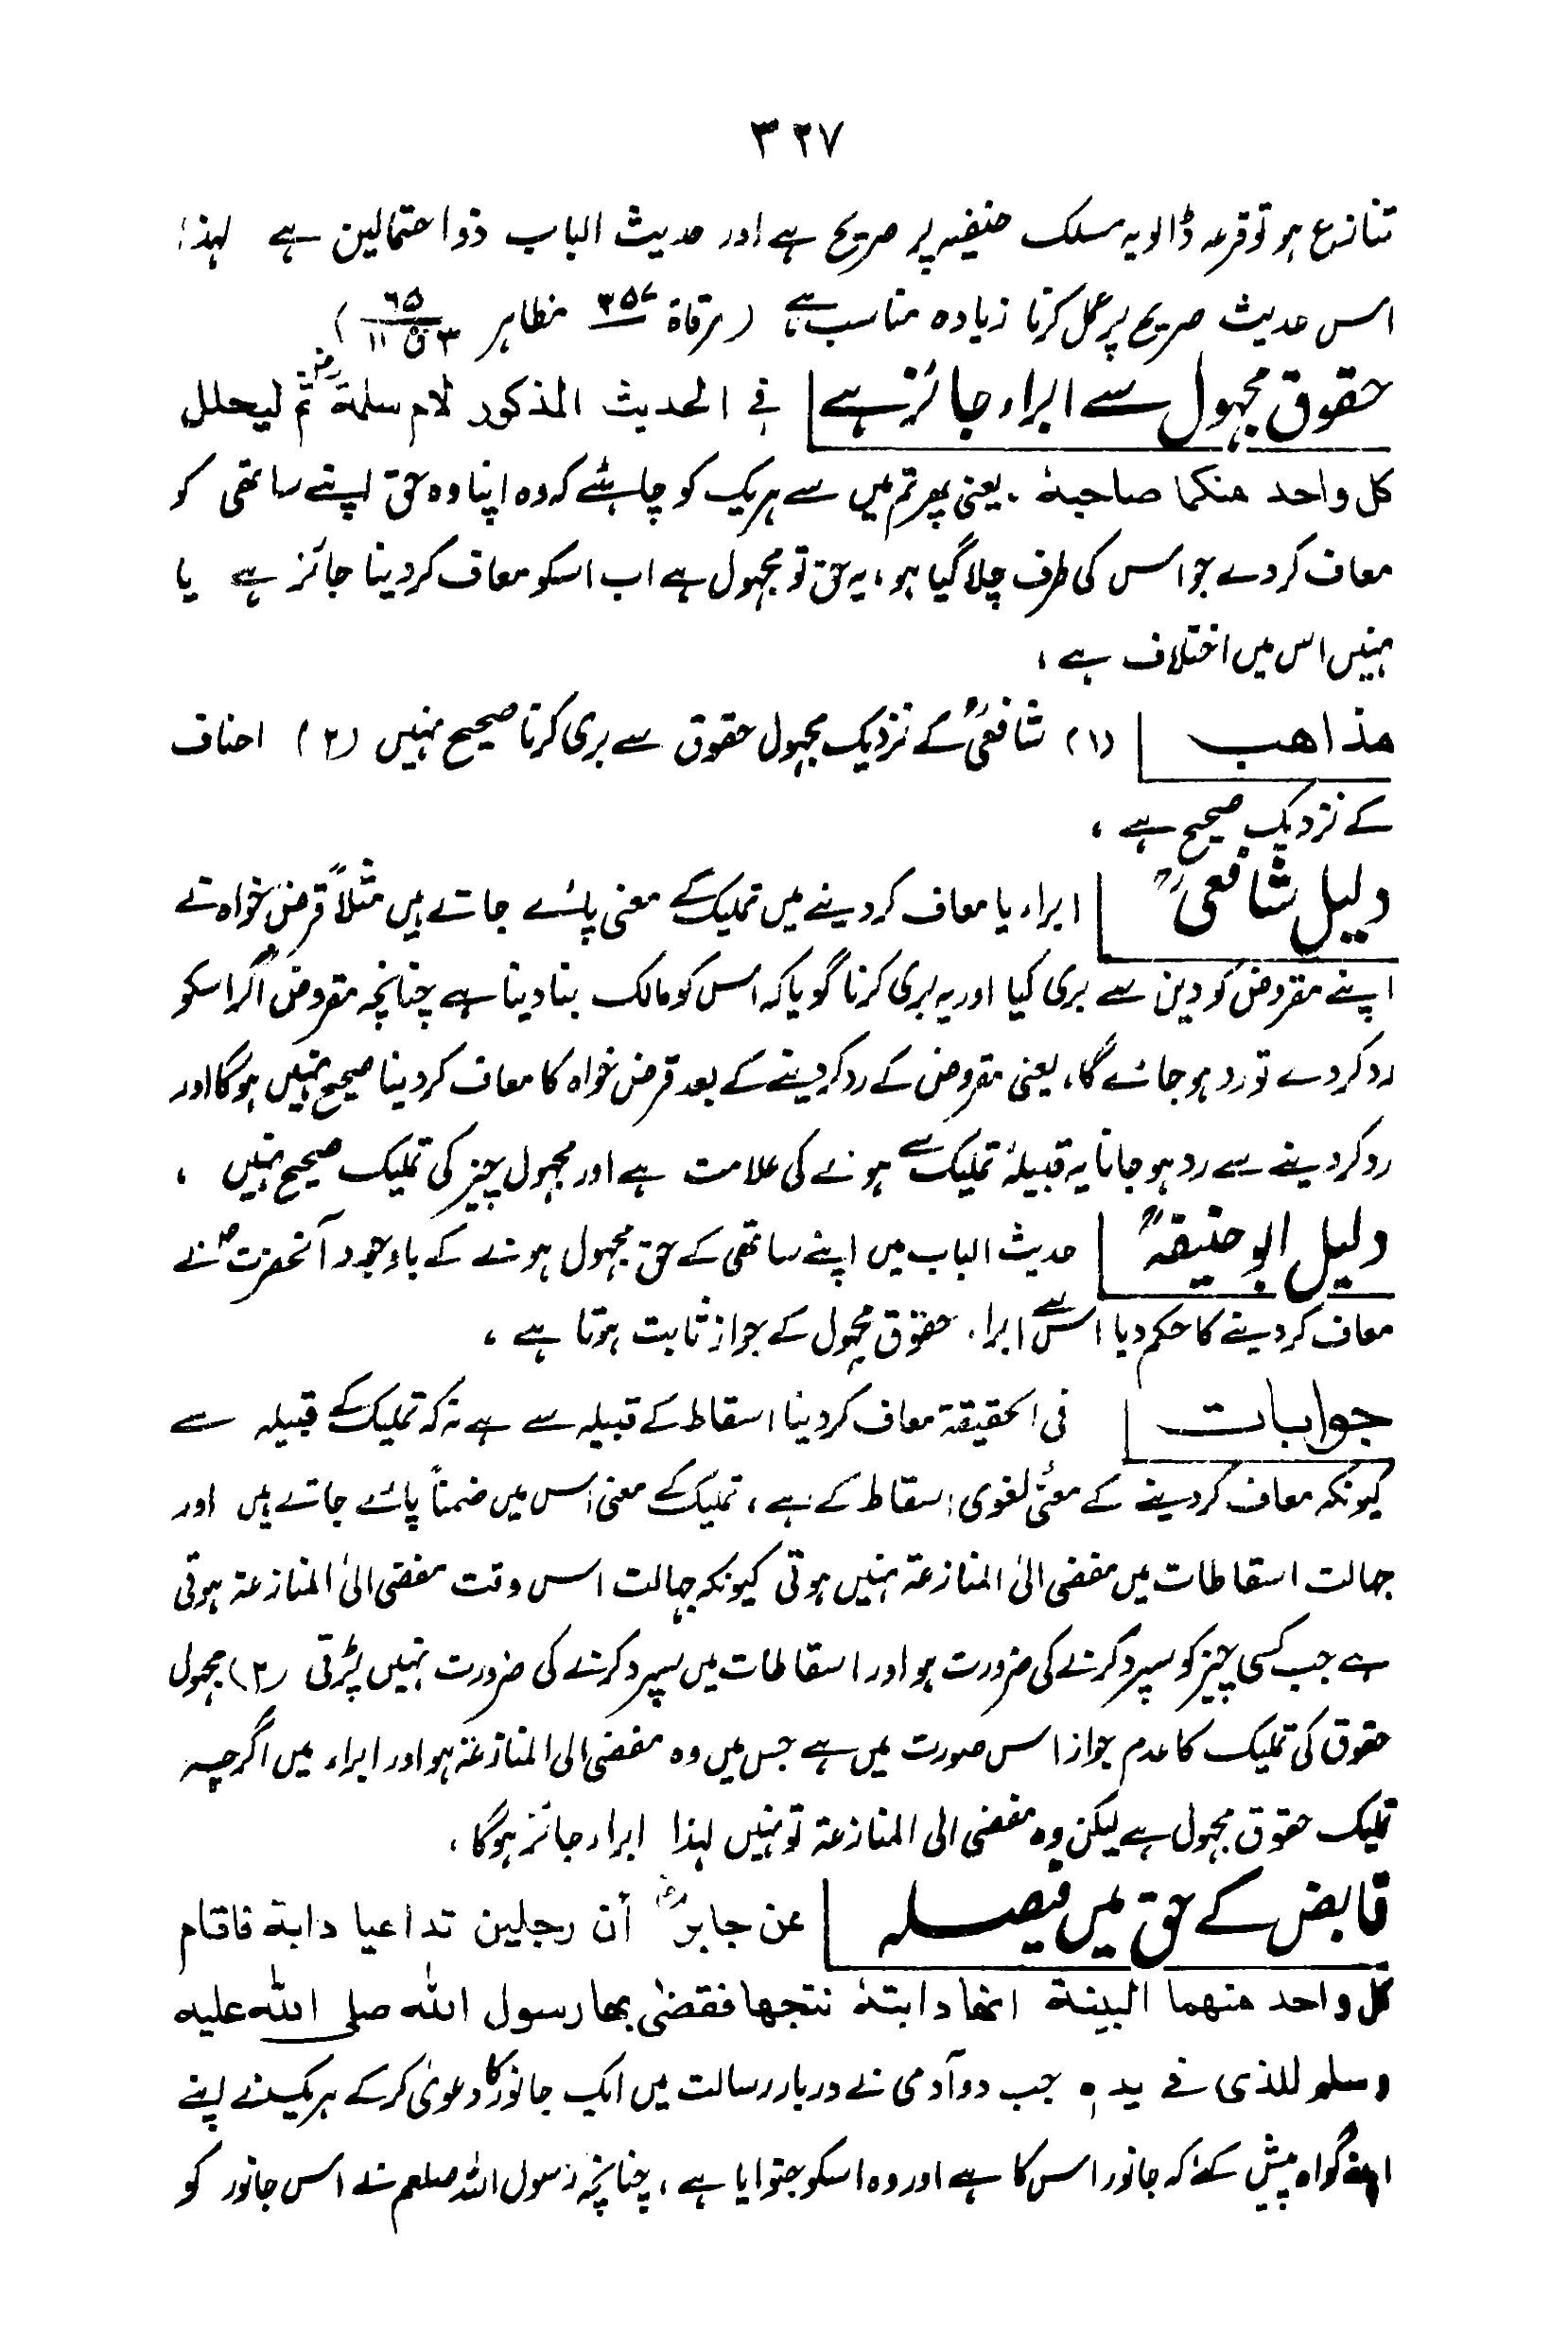 ۳۲۷
تنازع ہو تو قرعہ ڈالو یہ مسلک حنفیہ پر صریح ہے اور حدیث الباب ذو احتمالین ہے لہذا
اس حدیث صریح پر عمل کرنا زیادہ مناسب ہے (مرقاۃ مظاہر )
حقوق مجہول سے ابراء جائز ہے فی الحدیث المذکور لام سلمۃؓ ثم لیحلل
کل واحد منکما صاحبہٗ ۔ یعنی پھر تم میں سے ہریک کو چاہئے کہ وہ اپنا وہ حق اپنے ساتھی کو
معاف کر دے جو اس کی طرف چلا گیا ہو، یہ حق تو مجہول ہے اب اسکو معاف کر دینا جائز ہے یا
نہیں اس میں اختلاف ہے ،
مذاهب (۱) شافعیؒ کے نزدیک مجہول حقوق سے بری کرنا صحیح نہیں (۲) احناف
کے نزدیک صحیح ہے ،
دلیل شافعیؒ ابراء یا معاف کر دینے میں تملیک کے معنی پائے جاتے ہیں مثلاً قرض خواہ نے
اپنے مقروض کو دین سے بری کیا اور یہ بری کرنا گویا کہ اس کو مالک بنا دینا ہے چنانچہ مقروض اگر اسکو
رد کر دے تو رد ہو جائے گا، یعنی مقروض کے رد کر دینے کے بعد قرض خواہ کا معاف کر دینا صحیح نہیں ہوگا اور
رد کر دینے سے رد ہو جانا یہ قبیلۂ تملیک سے ہونے کی علامت ہے اور مجہول چیز کی تملیک صحیح نہیں ،
دلیل ابو حنیفہؒ حدیث الباب میں اپنے ساتھی کے حق مجہول ہونے کے باوجود آنحضرتؐ نے
معاف کر دینے کا حکم دیا اس سے ابراء حقوق مجہول کے جواز ثابت ہوتا ہے ،
جوابات فی الحقیقۃ معاف کر دینا اسقاط کے قبیلہ سے ہے نہ کہ تملیک کے قبیلہ سے
کیونکہ معاف کر دینے کے معنیٔ لغوی اسقاط کے ہے ، تملیک کے معنی اس میں ضمناً پائے جاتے ہیں اور
جہالت اسقاطات میں مفضی الیٰ المنازعۃ نہیں ہوتی کیونکہ جہالت اس وقت مفضی الیٰ المنازعۃ ہوتی
ہے جب کسی چیز کو سپرد کرنے کی ضرورت ہو اور اسقاطات میں سپرد کرنے کی ضرورت نہیں پڑتی (۲) مجہول
حقوق کی تملیک کا عدم جواز اس صورت میں ہے جس میں وہ مفضی الی المنازعۃ ہو اور ابراء میں اگرچہ
تملیک حقوق مجہول ہے لیکن وہ مفضی الی المنازعۃ تو نہیں لہذا ابراء جائز ہوگا ،
قابض کے حق میں فیصلہ عن جابرؓ أن رجلین تداعیا دابۃ فاقام
کل واحد منھما البینۃ انھا دابتہٗ نتجھا فقضیٰ بھا رسول اللہ صلی اللہ علیہ
وسلم للذی فی یدہ جب دو آدمی نے دربار رسالت میں ایک جانور کا دعویٰ کر کے ہریک نے اپنے
اپنے گواہ پیش کئے کہ جانور اس کا ہے اور وہ اسکو جنوایا ہے ، چنانچہ رسول اللہ صلعم نے اس جانور کو